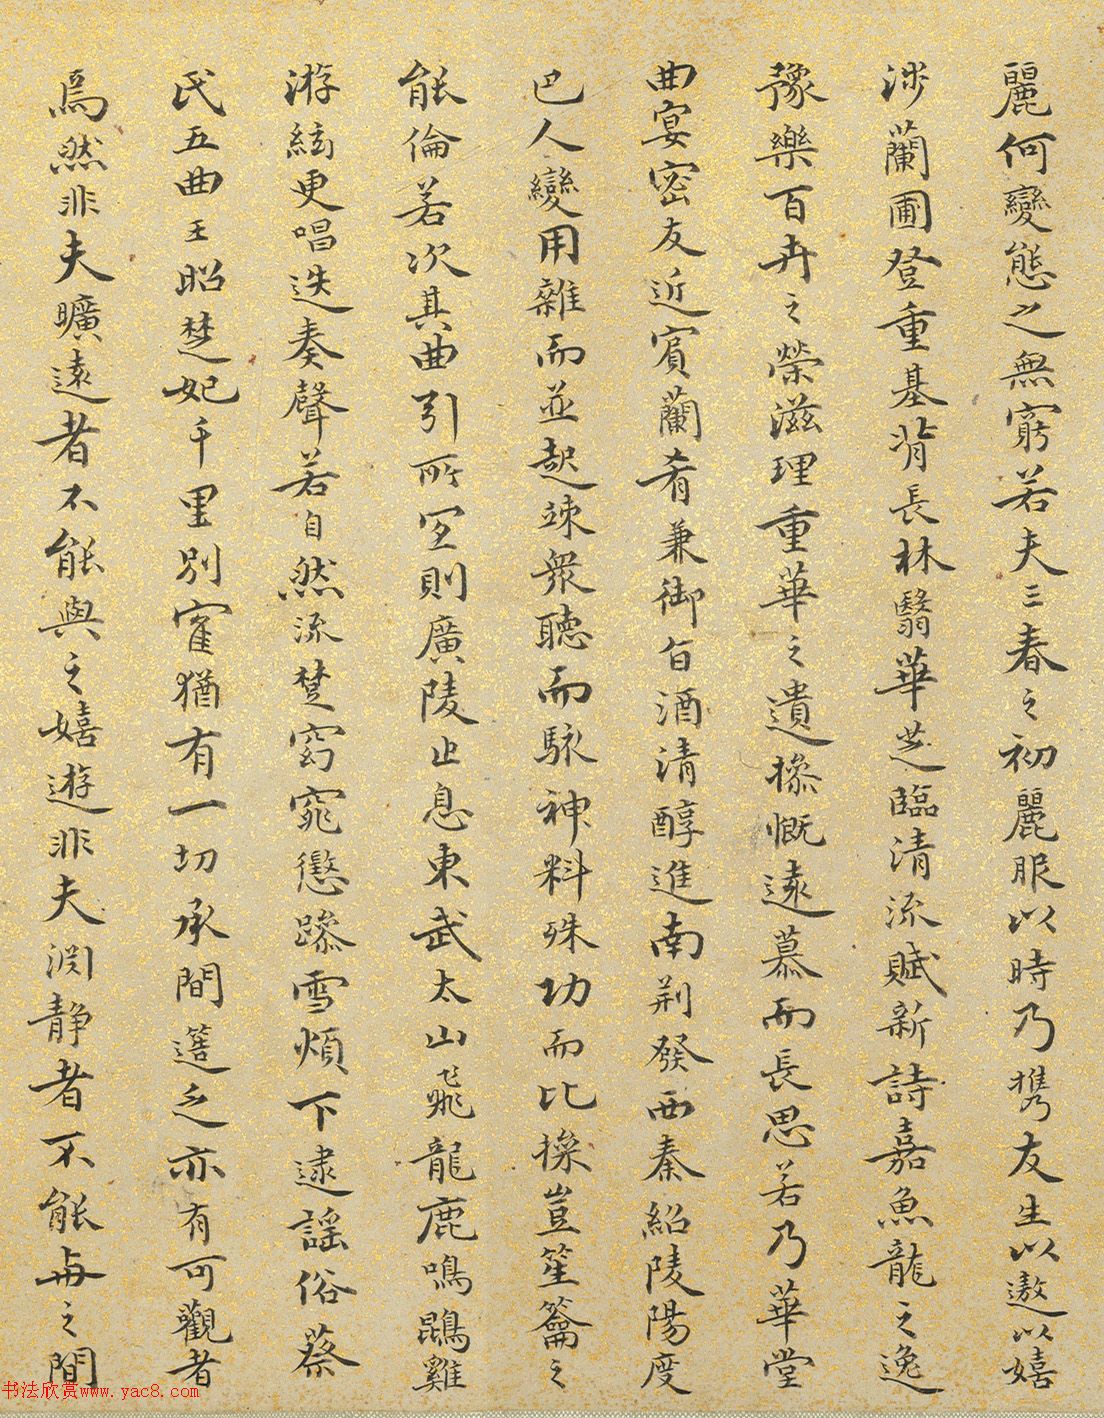 麗何變態之無窮若夫三春之初麗服以時乃携友生以遨以嬉
涉蘭圃登重基背長林翳華芝臨清流賦新詩嘉魚龍之逸
豫樂百卉之榮滋理重華之遺操慨遠慕而長思若乃華堂
曲宴密友近賓蘭肴兼御旨酒清醇進南荆發西秦紹陵陽度
巴人變用雜而並起竦衆聽而駭神料殊功而比操豈笙籥之
能倫若次其曲引所宜則廣陵止息東武太山飛龍鹿鳴鵾雞
游絃更唱迭奏聲若自然流楚窈窕懲躁雪煩下逮謡俗蔡
氏五曲王昭楚妃千里別寉猶有一切承間簉乏亦有可觀者
焉然非夫曠遠者不能與之嬉遊非夫渊静者不能与之閒
书法欣赏www.yac8.com